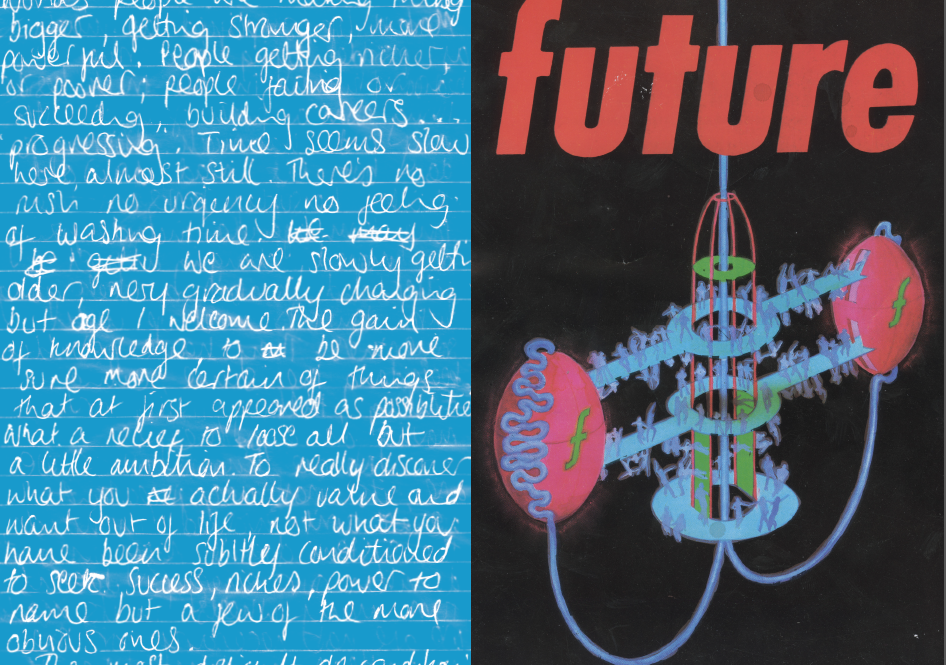 people we making
bigger, getting stronger, more
powerful. People getting richer,
or poorer, people failing or
succeeding, building careers...
progressing. Time seems slow
here almost still. There's no
rush no urgency no feeling
of washing time. We may
be getting we are slowly gettin
older, very gradually changing
but age I welcome. The gain
of knowledge, to be more
sure more certain of things
that at first appeared as possibilitie
what a relief to loose all but
a little ambition. To really discover
what you actually value and
want out of life, not what you
have been subltly conditioned
to seek success, riches, power to
name but a few of the more
obvious ones.
The most
future
f
f